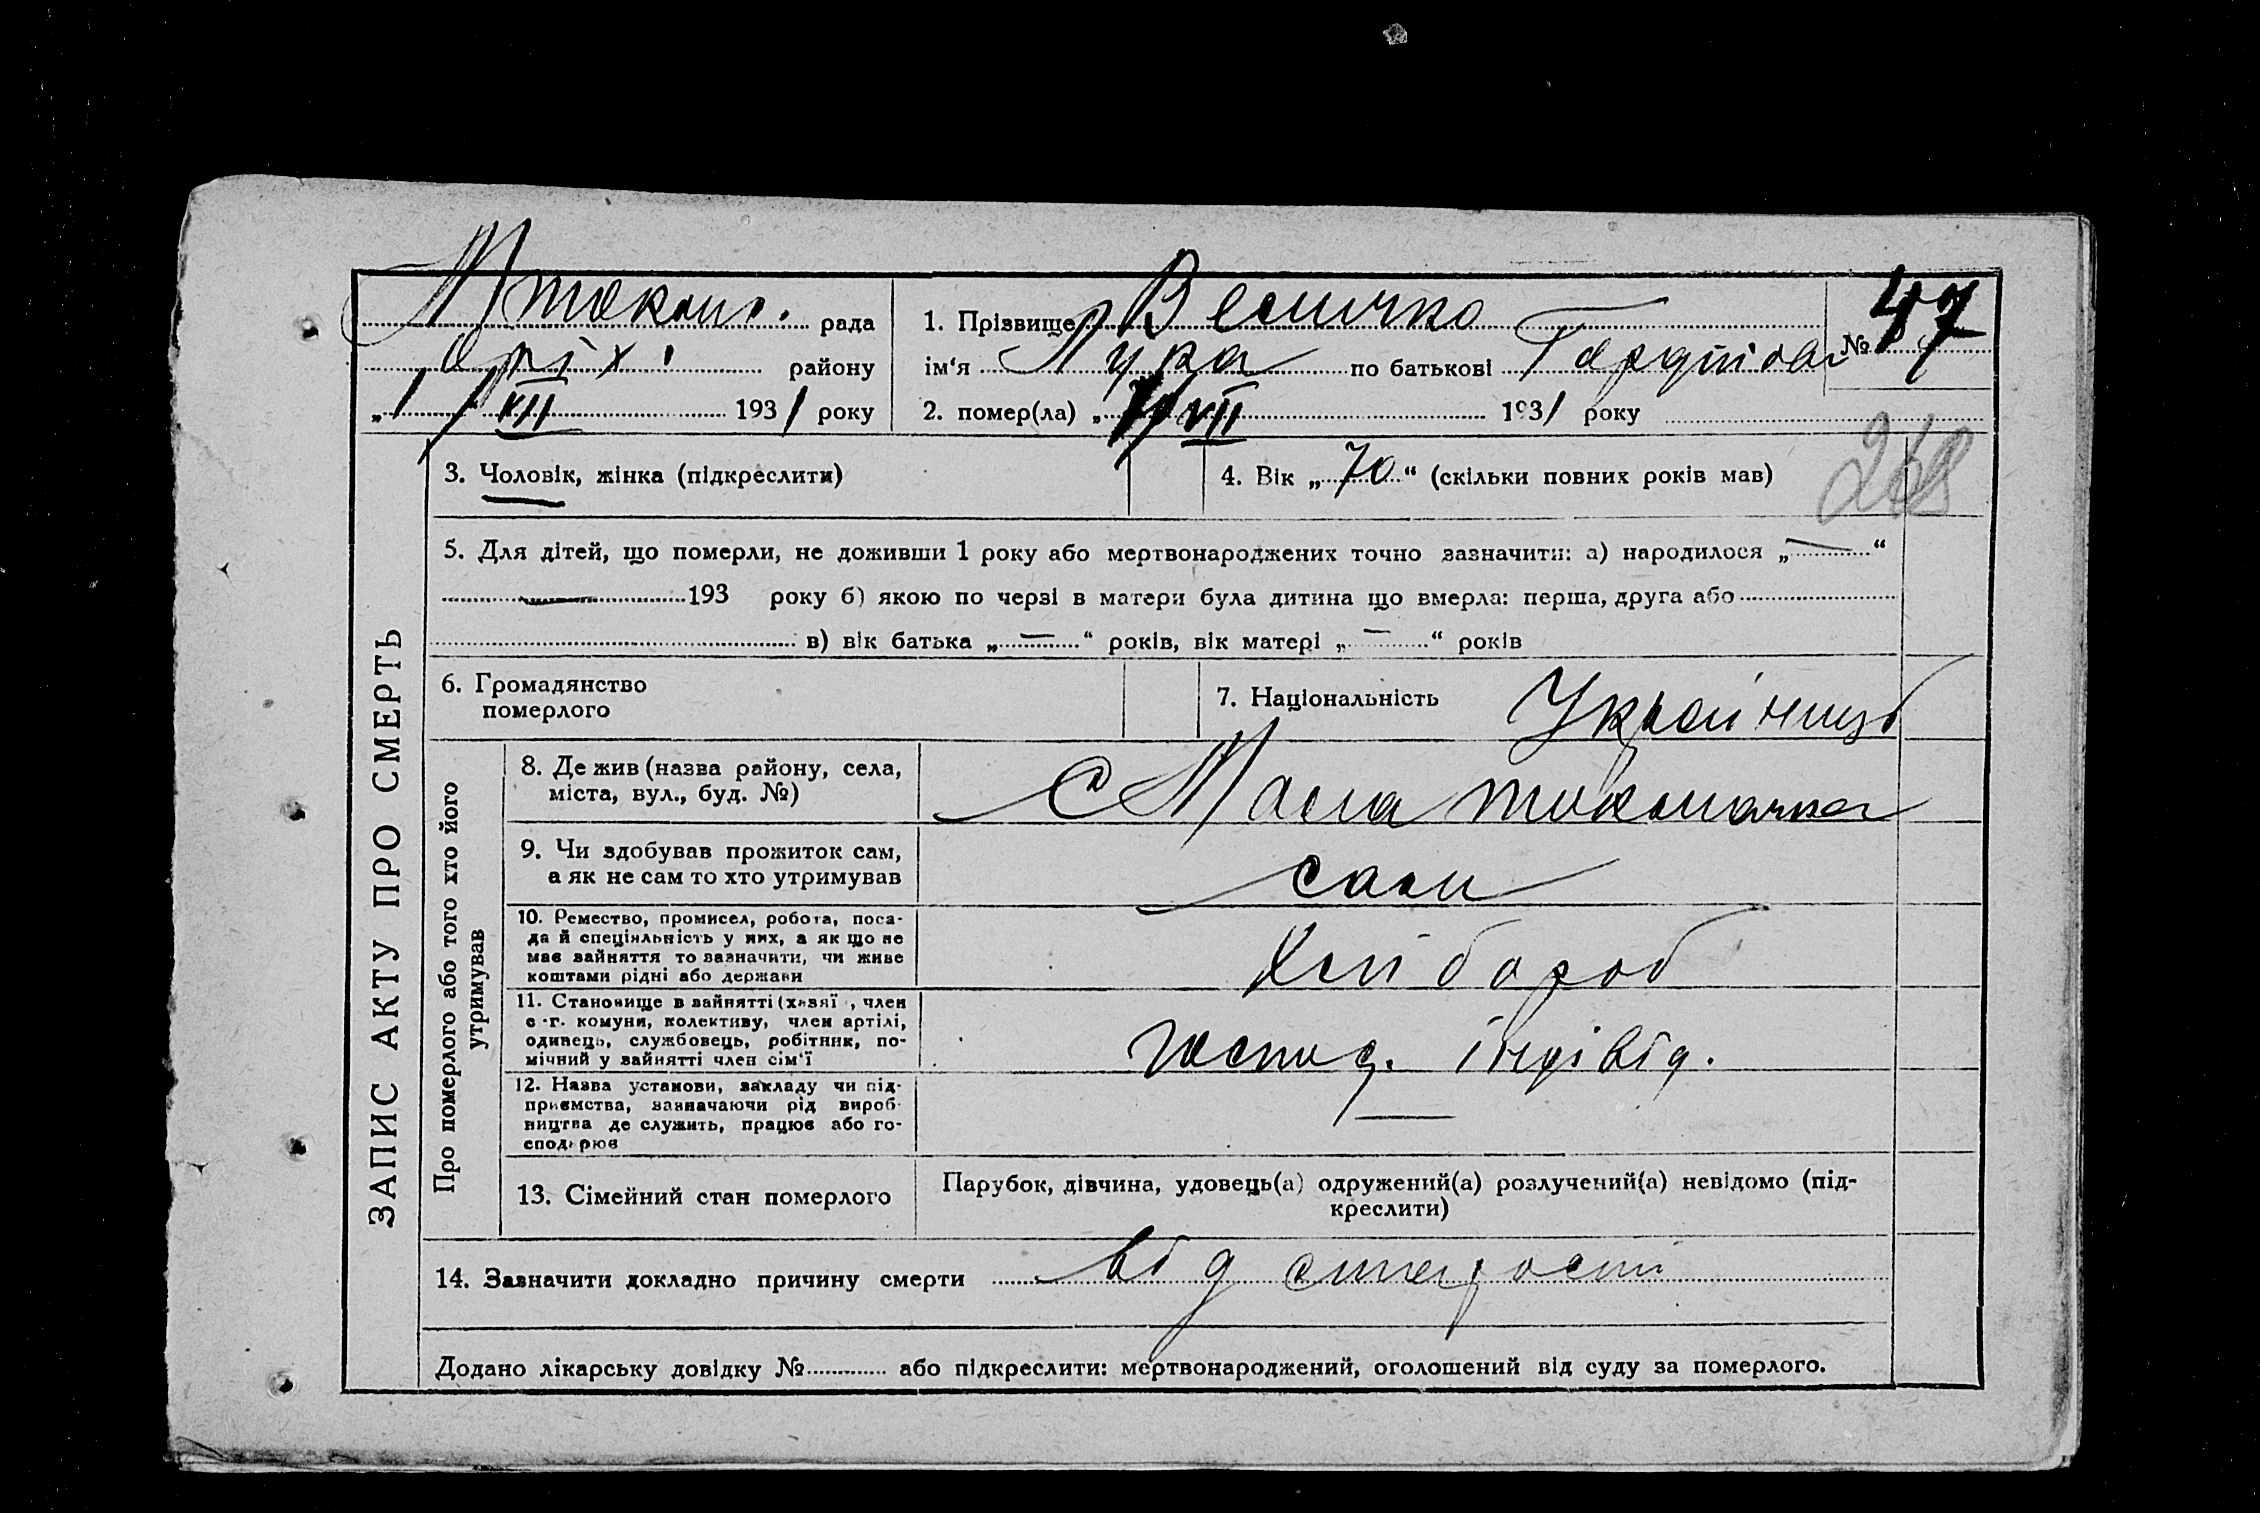 М токмач. рада
Оріх. району
„1/VII 1931 року
1. Прізвище Величко
ім‘я Лука по батькові Гордийов
№ 47
2. помер(ла) „ VII 1931 року
268
ЗАПИС АКТУ ПРО СМЕРТЬ
3. Чоловік, жінка (підкреслити)
4. Вік „70“ (скільки повних років мав)
5. Для дітей, що померли, не доживши 1 року або мертвонароджених точно зазначити: а) народилося „—“
— 193 року б) якою по черзі в матери була дитина що вмерла: перша, друга або
в) вік батька „—“ років, вік матері „—“ років
6. Громадянство
померлого
7. Національність Україниць
Про померлого або того хто його
утримував
8. Де жив (назва району, села,
міста, вул., буд. №)
с Мала токмачка
9. Чи здобував прожиток сам,
а як не сам то хто утримував
сам
10. Ремество, промисел, робота, поса-
да й спеціяльність у них, а як що не
має зайняття то зазначити, чи живе
коштами рідні або держави
Хлібороб
11. Становище в зайнятті (хазяї , член
с.-г. комуни, колективу, член артілі,
одинець, службовець, робітник, по-
мічний у зайнятті член сім‘ї
господ. індівід.
12. Назва установи, закладу чи під-
приємства, зазначаючи рід вироб-
ництва де служить, працює або го-
сподарює
—
13. Сімейний стан померлого
Парубок, дівчина, удовець(а) одружений(а) розлучений(а) невідомо (під-
креслити)
14. Зазначити докладно причину смерти від старости
Додано лікарську довідку № або підкреслити: мертвонароджений, оголошений від суду за померлого.